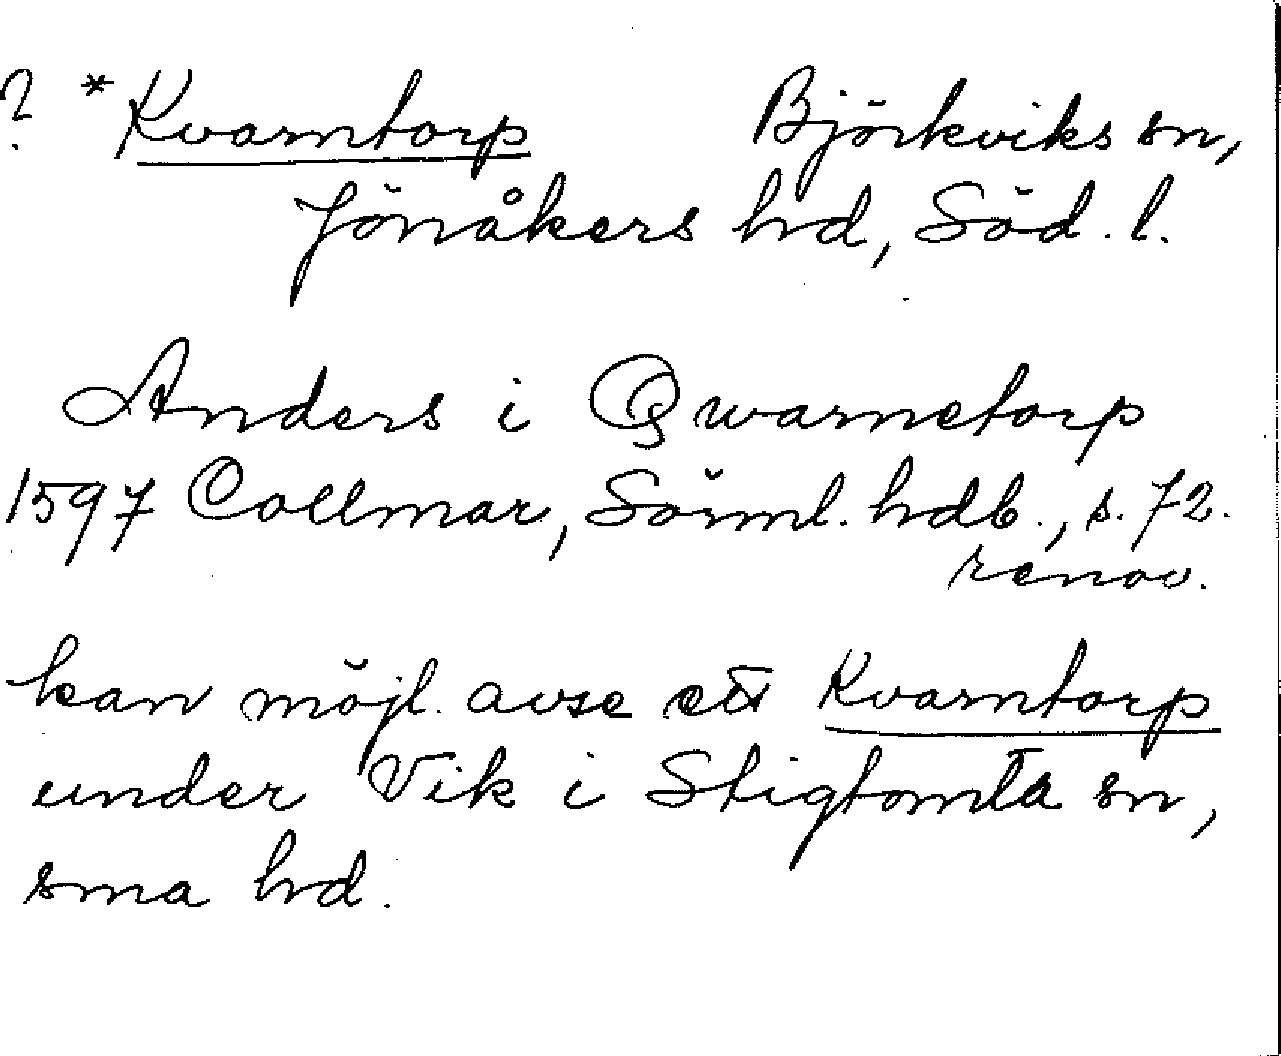 ? *Kvarntorp Björkviks sn,
Jönåkers hd, Söd. l.
Anders i Qwarnetorp
1597 Collmar, Sörml. hdb., s. 72.
renov.
kan möjl. avse ett Kvarntorp
under Vik i Stigtomta sn,
sma hd.